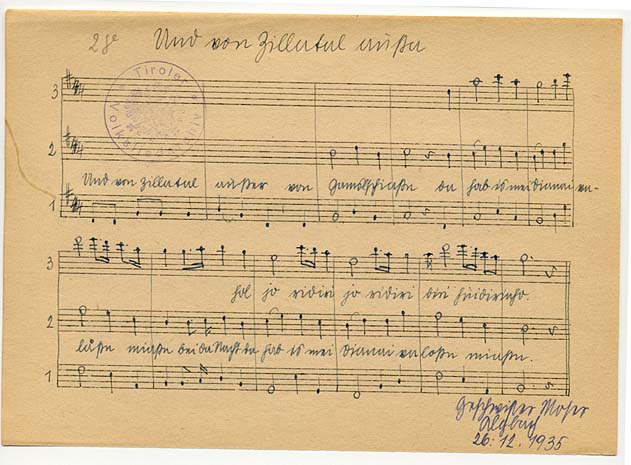 28e
Und von Zillertal außa
Tiroler Volksliedarchiv
3
2
Und von Zillertal außer von Gamslschiaßn da hab is mei Dianai va-
1
3
hol jo ridiri jo ridiri diri huidiriaho.
2
laßn miaßn bei da Nacht da hab is mei Dianai valoßn miaßn.
1
Geschwister Moser
26. 12. 1935